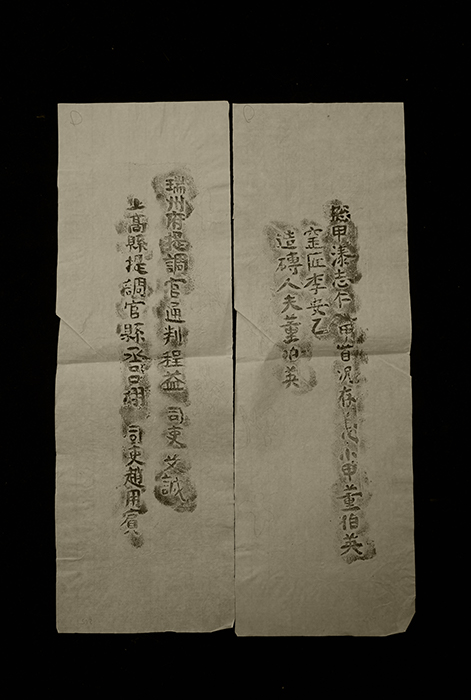 總甲漆志仁 甲首況存 小甲董伯英
窑匠李安乙
造磚人夫董伯英
瑞州府提調官通判程益 司吏艾誠
上高縣提調官縣丞 司吏趙用賓